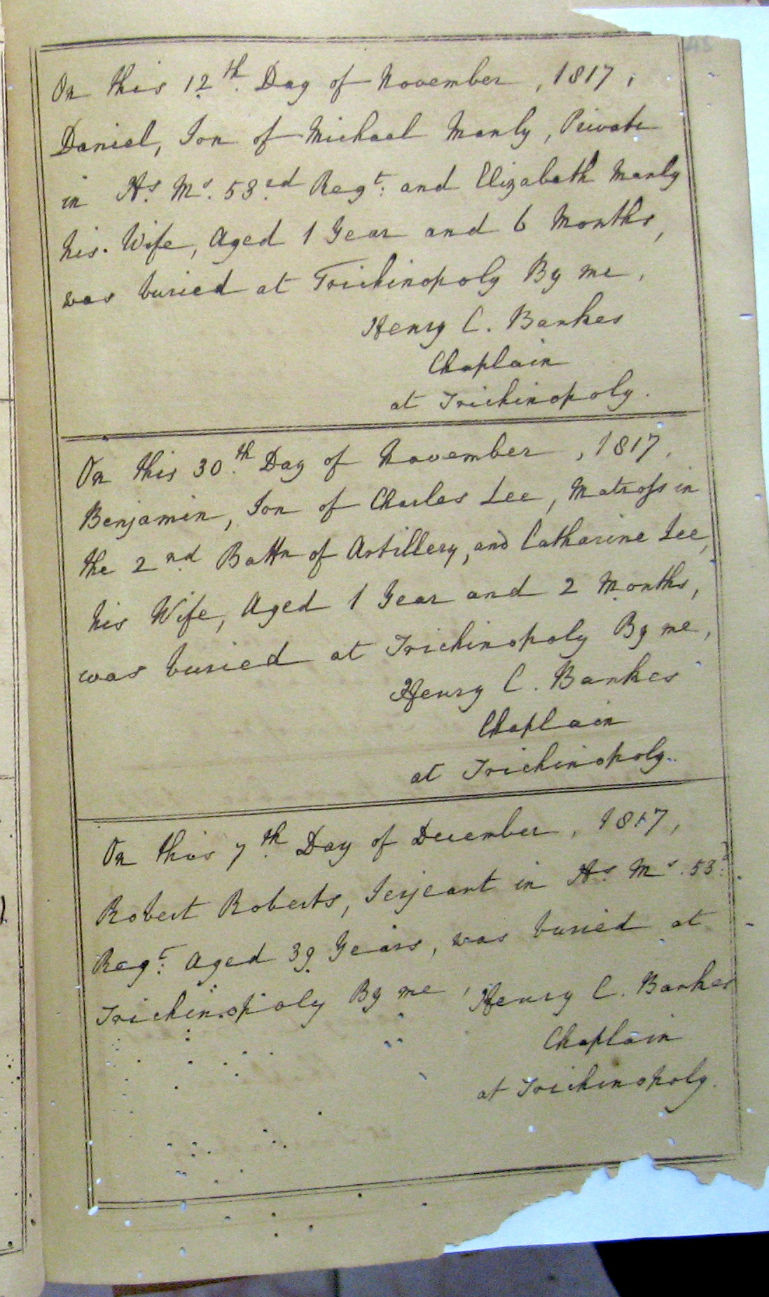 On this 12th Day of November, 1817,
Daniel, Son of Michael Manly, Private
in Hs. Ms. 53rd Regt. and Elizabeth Manly
his Wife, Aged 1 Year and 6 Months,
was buried at Trichinopoly By me,
Henry C. Bankes
Chaplain
at Trichinopoly.
On this 30th Day of November, 1817,
Benjamin, Son of Charles Lee, Matross in
the 2nd Battn of Artillery, and Catharine Lee,
his Wife, Aged 1 Year and 2 Months,
was buried at Trichinopoly By me,
Henry C. Bankes
Chaplain
at Trichinopoly.
On this 7th Day of December, 1817,
Robert Roberts, Serjeant in Hs. Ms. 53d
Regt. Aged 39 Years, was buried at
Trichinopoly By me, Henry C. Bankes
Chaplain
at Trichinopoly.